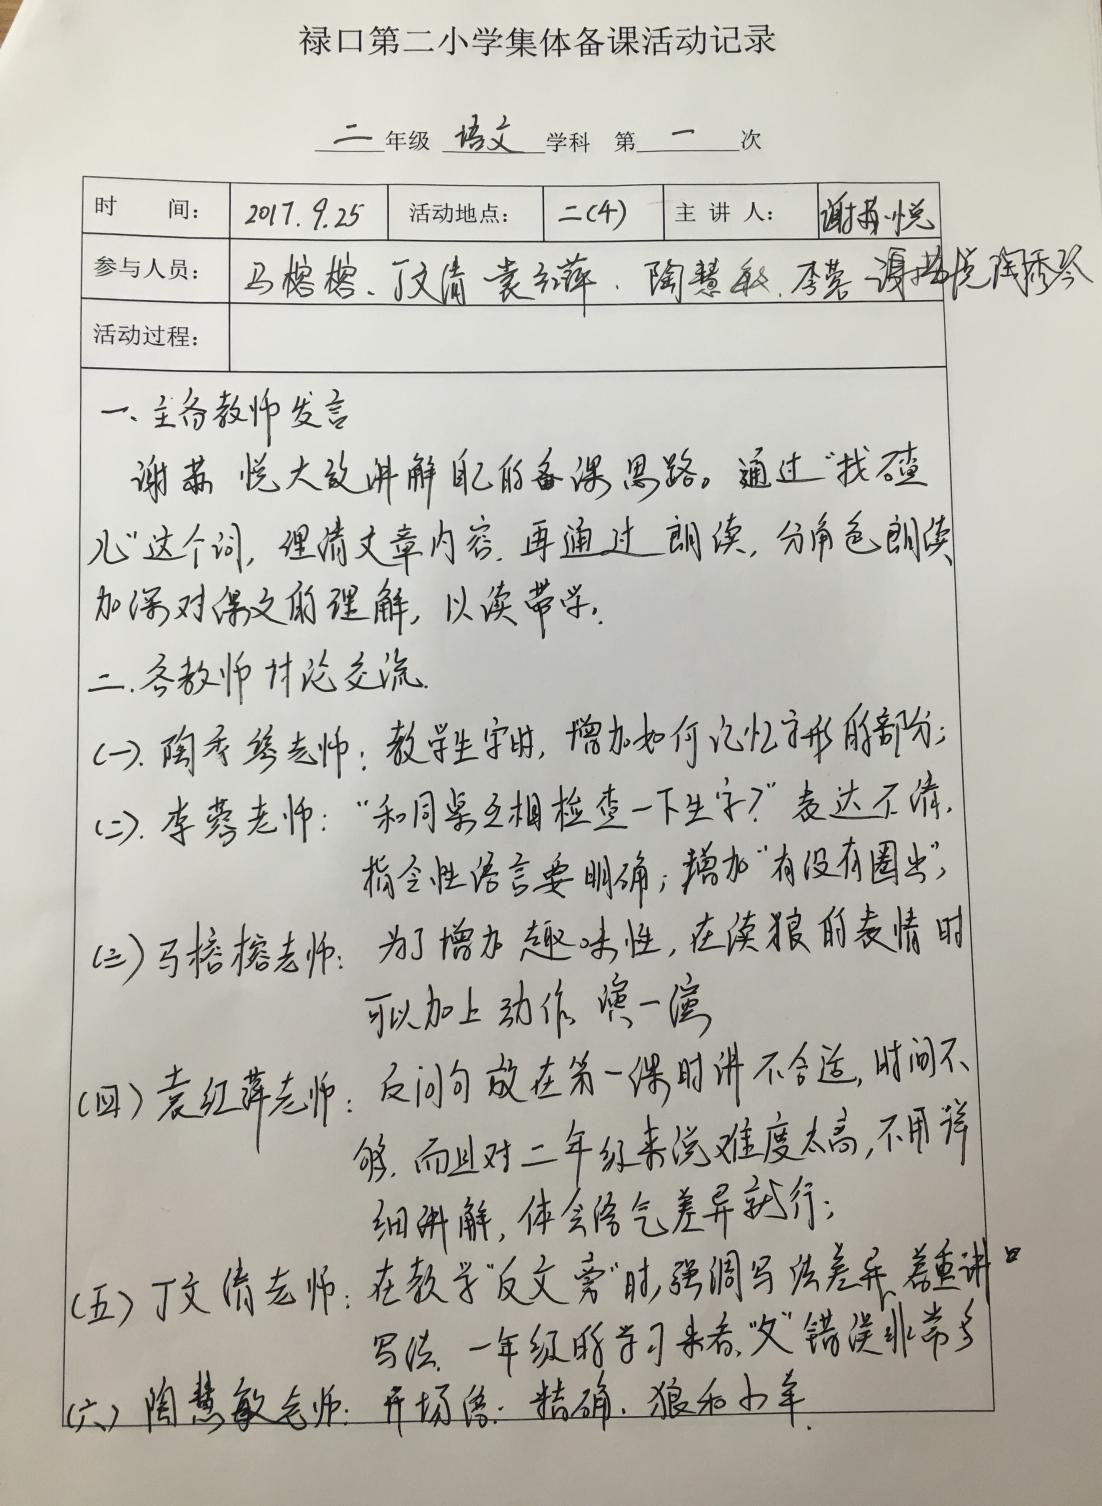 禄口第二小学集体备课活动记录
二年级 语文 学科 第 一 次
时 间： 2017.9.25 活动地点： 二(4) 主 讲 人： 谢苏悦
参与人员： 马榕榕、丁文清 袁红萍、陶慧敏、李蓉 谢苏悦 陶秀琴
活动过程：
一、主备教师发言
谢苏悦大致讲解自己的备课思路。通过“找碴
儿”这个词，理清文章内容，再通过朗读，分角色朗读
加深对课文的理解，以读带学。
二、各教师讨论交流
(一)、陶秀琴老师：教学生字时，增加如何记忆字形的部分；
(二)、李蓉老师：“和同桌互相检查一下生字？”表达不清，
指令性语言要明确；增加“有没有圈出”；
(三) 马榕榕老师：为了增加趣味性，在读狼的表情时
可以加上动作，演一演
(四) 袁红萍老师：反问句放在第一课时讲不合适，时间不
够，而且对二年级来说难度太高，不用详
细讲解，体会语气差异就行；
(五) 丁文清老师：在教学“反文旁”时，强调写法差异、着重讲
写法，一年级的学习来看，“攵”错误非常多
(六) 陶慧敏老师：开场语：精确，狼和小羊．